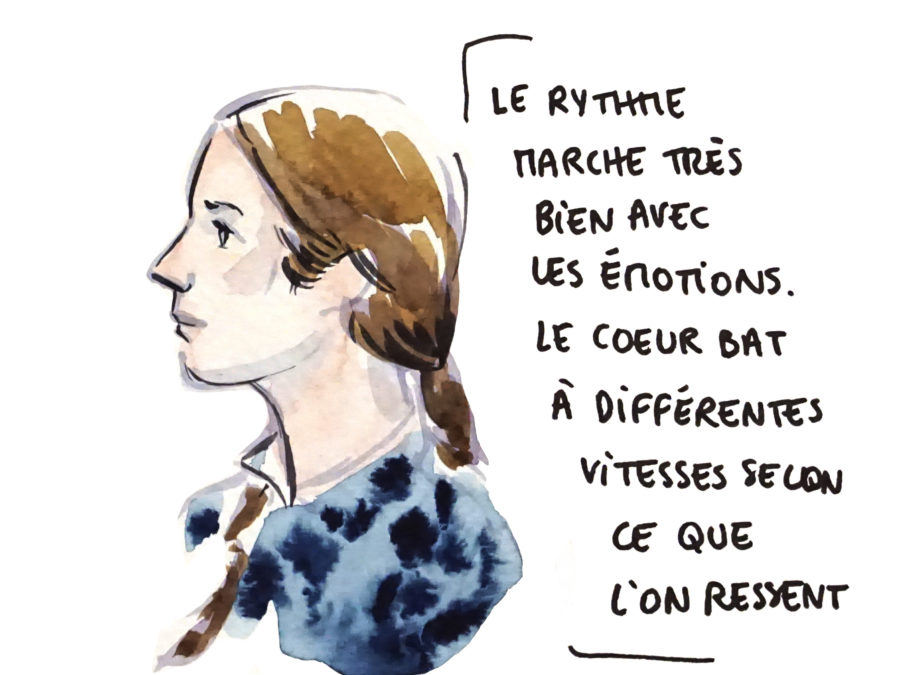 LE RYTHME
MARCHE TRÈS
BIEN AVEC
LES ÉMOTIONS.
LE COEUR BAT
À DIFFÉRENTES
VITESSES SELON
CE QUE
L'ON RESSENT